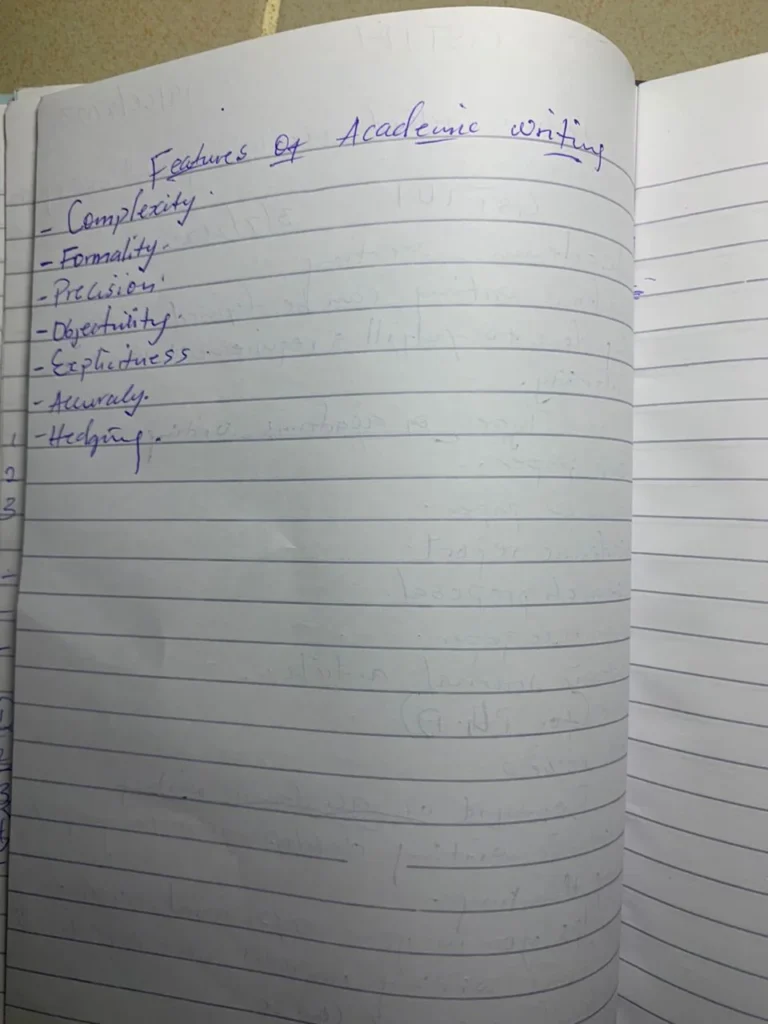 Features of Academic Writing
- Complexity.
- Formality.
- Precision.
- Objectivity.
- Explicitness.
- Accuracy.
- Hedging.
1
2
3